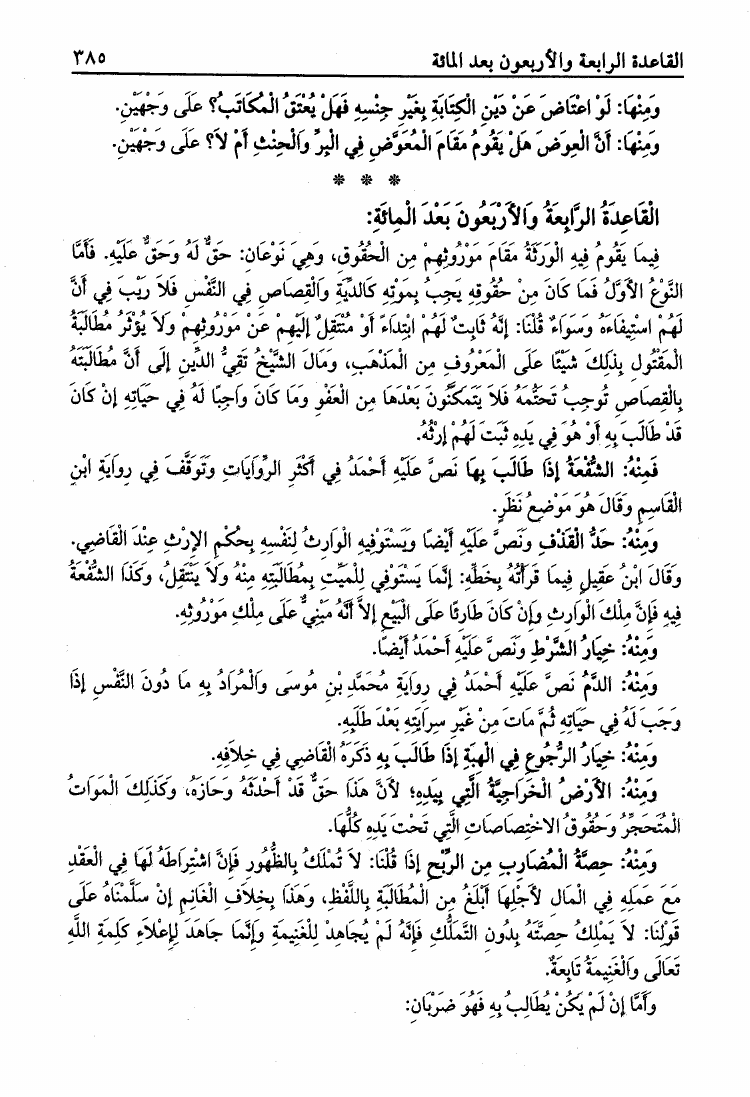 القاعدة الرابعة والأربعون بعد المائة ٣٨٥
وَمِنْهَا: لَوْ اعْتَاضَ عَنْ دَيْنِ الْكِتَابَةِ بِغَيْرِ جِنْسِهِ فَهَلْ يُعْتَقُ الْمُكَاتَبُ؟ عَلَى وَجْهَيْنِ.
وَمِنْهَا: أَنَّ الْعِوَضَ هَلْ يَقُومُ مَقَامَ الْمُعَوَّضِ فِي الْبِرِّ وَالْحِنْثِ أَمْ لاَ؟ عَلَى وَجْهَيْنِ.
* * *
الْقَاعِدَةُ الرَّابِعَةُ وَالأَرْبَعُونَ بَعْدَ الْمِائَةِ:
فِيمَا يَقُومُ فِيهِ الْوَرَثَةُ مَقَامَ مَوْرُوثِهِمْ مِنَ الْحُقُوقِ، وَهِيَ نَوْعَانِ: حَقٌّ لَهُ وَحَقٌّ عَلَيْهِ. فَأَمَّا
النَّوْعُ الأَوَّلُ فَمَا كَانَ مِنْ حُقُوقِهِ يَجِبُ بِمَوْتِهِ كَالدِّيَةِ وَالْقِصَاصِ فِي النَّفْسِ فَلاَ رَيْبَ فِي أَنَّ
لَهُمْ اسْتِيفَاءَهُ وَسَوَاءٌ قُلْنَا: إِنَّهُ ثَابِتٌ لَهُمْ ابْتِدَاءً أَوْ مُنْتَقِلٌ إِلَيْهِمْ عَنْ مَوْرُوثِهِمْ وَلاَ يُؤْثَرُ مُطَالَبَةُ
الْمَقْتُولِ بِذَلِكَ شَيْئًا عَلَى الْمَعْرُوفِ مِنَ الْمَذْهَبِ، وَمَالَ الشَّيْخُ تَقِيُّ الدِّينِ إِلَى أَنَّ مُطَالَبَتَهُ
بِالْقِصَاصِ تُوجِبُ تَحَتُّمَهُ فَلاَ يَتَمَكَّنُونَ بَعْدَهَا مِنَ الْعَفْوِ وَمَا كَانَ وَاجِبًا لَهُ فِي حَيَاتِهِ إِنْ كَانَ
قَدْ طَالَبَ بِهِ أَوْ هُوَ فِي يَدِهِ ثَبَتَ لَهُمْ إِرْثُهُ.
فَمِنْهُ: الشُّفْعَةُ إِذَا طَالَبَ بِهَا نَصَّ عَلَيْهِ أَحْمَدُ فِي أَكْثَرِ الرِّوَايَاتِ وَتَوَقَّفَ فِي رِوَايَةِ ابْنِ
الْقَاسِمِ وَقَالَ هُوَ مَوْضِعُ نَظَرٍ.
وَمِنْهُ: حَدُّ الْقَذْفِ وَنَصَّ عَلَيْهِ أَيْضًا وَيَسْتَوْفِيهِ الْوَارِثُ لِنَفْسِهِ بِحُكْمِ الإِرْثِ عِنْدَ الْقَاضِي.
وَقَالَ ابْنُ عَقِيلٍ فِيمَا قَرَأْتُهُ بِخَطِّهِ: إِنَّمَا يَسْتَوْفِي لِلْمَيِّتِ بِمُطَالَبَتِهِ مِنْهُ وَلاَ يَنْتَقِلُ، وَكَذَا الشُّفْعَةُ
فِيهِ فَإِنَّ مِلْكَ الْوَارِثِ وَإِنْ كَانَ طَارِئًا عَلَى الْبَيْعِ إِلاَّ أَنَّهُ مَبْنِيٌّ عَلَى مِلْكِ مَوْرُوثِهِ.
وَمِنْهُ: خِيَارُ الشَّرْطِ وَنَصَّ عَلَيْهِ أَحْمَدُ أَيْضًا.
وَمِنْهُ: الدَّمُ نَصَّ عَلَيْهِ أَحْمَدُ فِي رِوَايَةِ مُحَمَّدِ بْنِ مُوسَى وَالْمُرَادُ بِهِ مَا دُونَ النَّفْسِ إِذَا
وَجَبَ لَهُ فِي حَيَاتِهِ ثُمَّ مَاتَ مِنْ غَيْرِ سِرَايَتِهِ بَعْدَ طَلَبِهِ.
وَمِنْهُ: خِيَارُ الرُّجُوعِ فِي الْهِبَةِ إِذَا طَالَبَ بِهِ ذَكَرَهُ الْقَاضِي فِي خِلاَفِهِ.
وَمِنْهُ: الأَرْضُ الْخَرَاجِيَّةُ الَّتِي بِيَدِهِ؛ لأَنَّ هَذَا حَقٌّ قَدْ أَحْدَثَهُ وَحَازَهُ، وَكَذَلِكَ الْمَوَاتُ
الْمُتَحَجِّرُ وَحُقُوقُ الاخْتِصَاصَاتِ الَّتِي تَحْتَ يَدِهِ كُلُّهَا.
وَمِنْهُ: حِصَّةُ الْمُضَارِبِ مِنَ الرِّبْحِ إِذَا قُلْنَا: لاَ تُمْلَكُ بِالظُّهُورِ فَإِنَّ اشْتِرَاطَهُ لَهَا فِي الْعَقْدِ
مَعَ عَمَلِهِ فِي الْمَالِ لأَجْلِهَا أَبْلَغُ مِنَ الْمُطَالَبَةِ بِاللَّفْظِ، وَهَذَا بِخِلاَفِ الْغَانِمِ إِنْ سَلَّمْنَاهُ عَلَى
قَوْلُنَا: لاَ يَمْلِكُ حِصَّتَهُ بِدُونِ التَّمَلُّكِ فَإِنَّهُ لَمْ يُجَاهِدْ لِلْغَنِيمَةِ وَإِنَّمَا جَاهَدَ لِإِعْلاَءِ كَلِمَةِ اللَّهِ
تَعَالَى وَالْغَنِيمَةُ تَابِعَةٌ.
وَأَمَّا إِنْ لَمْ يَكُنْ يُطَالِبُ بِهِ فَهُوَ ضَرْبَانِ: